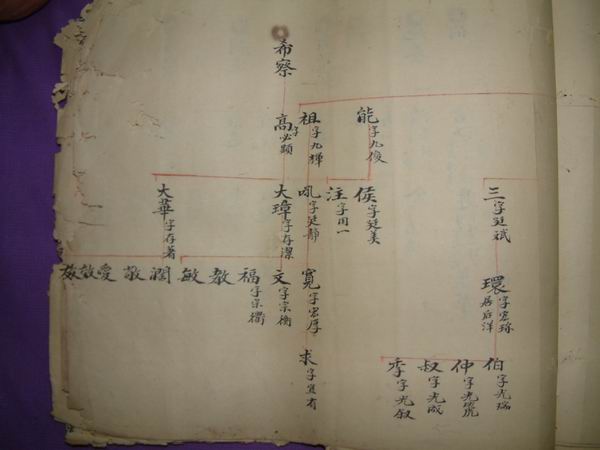 三字廷斌
環字宏琢
居后洋
伯字光瑞
仲字光虎
叔字光成
季字光叙
能字九俊
侯字廷美
注字用一
祖字九禪
吼字廷静
寬字宏厚
求字宜有
希察
高字必顯
大璋字存潔
文字宗衡
福字宗衢
教
敏
大華字存著
濶
敬
愛